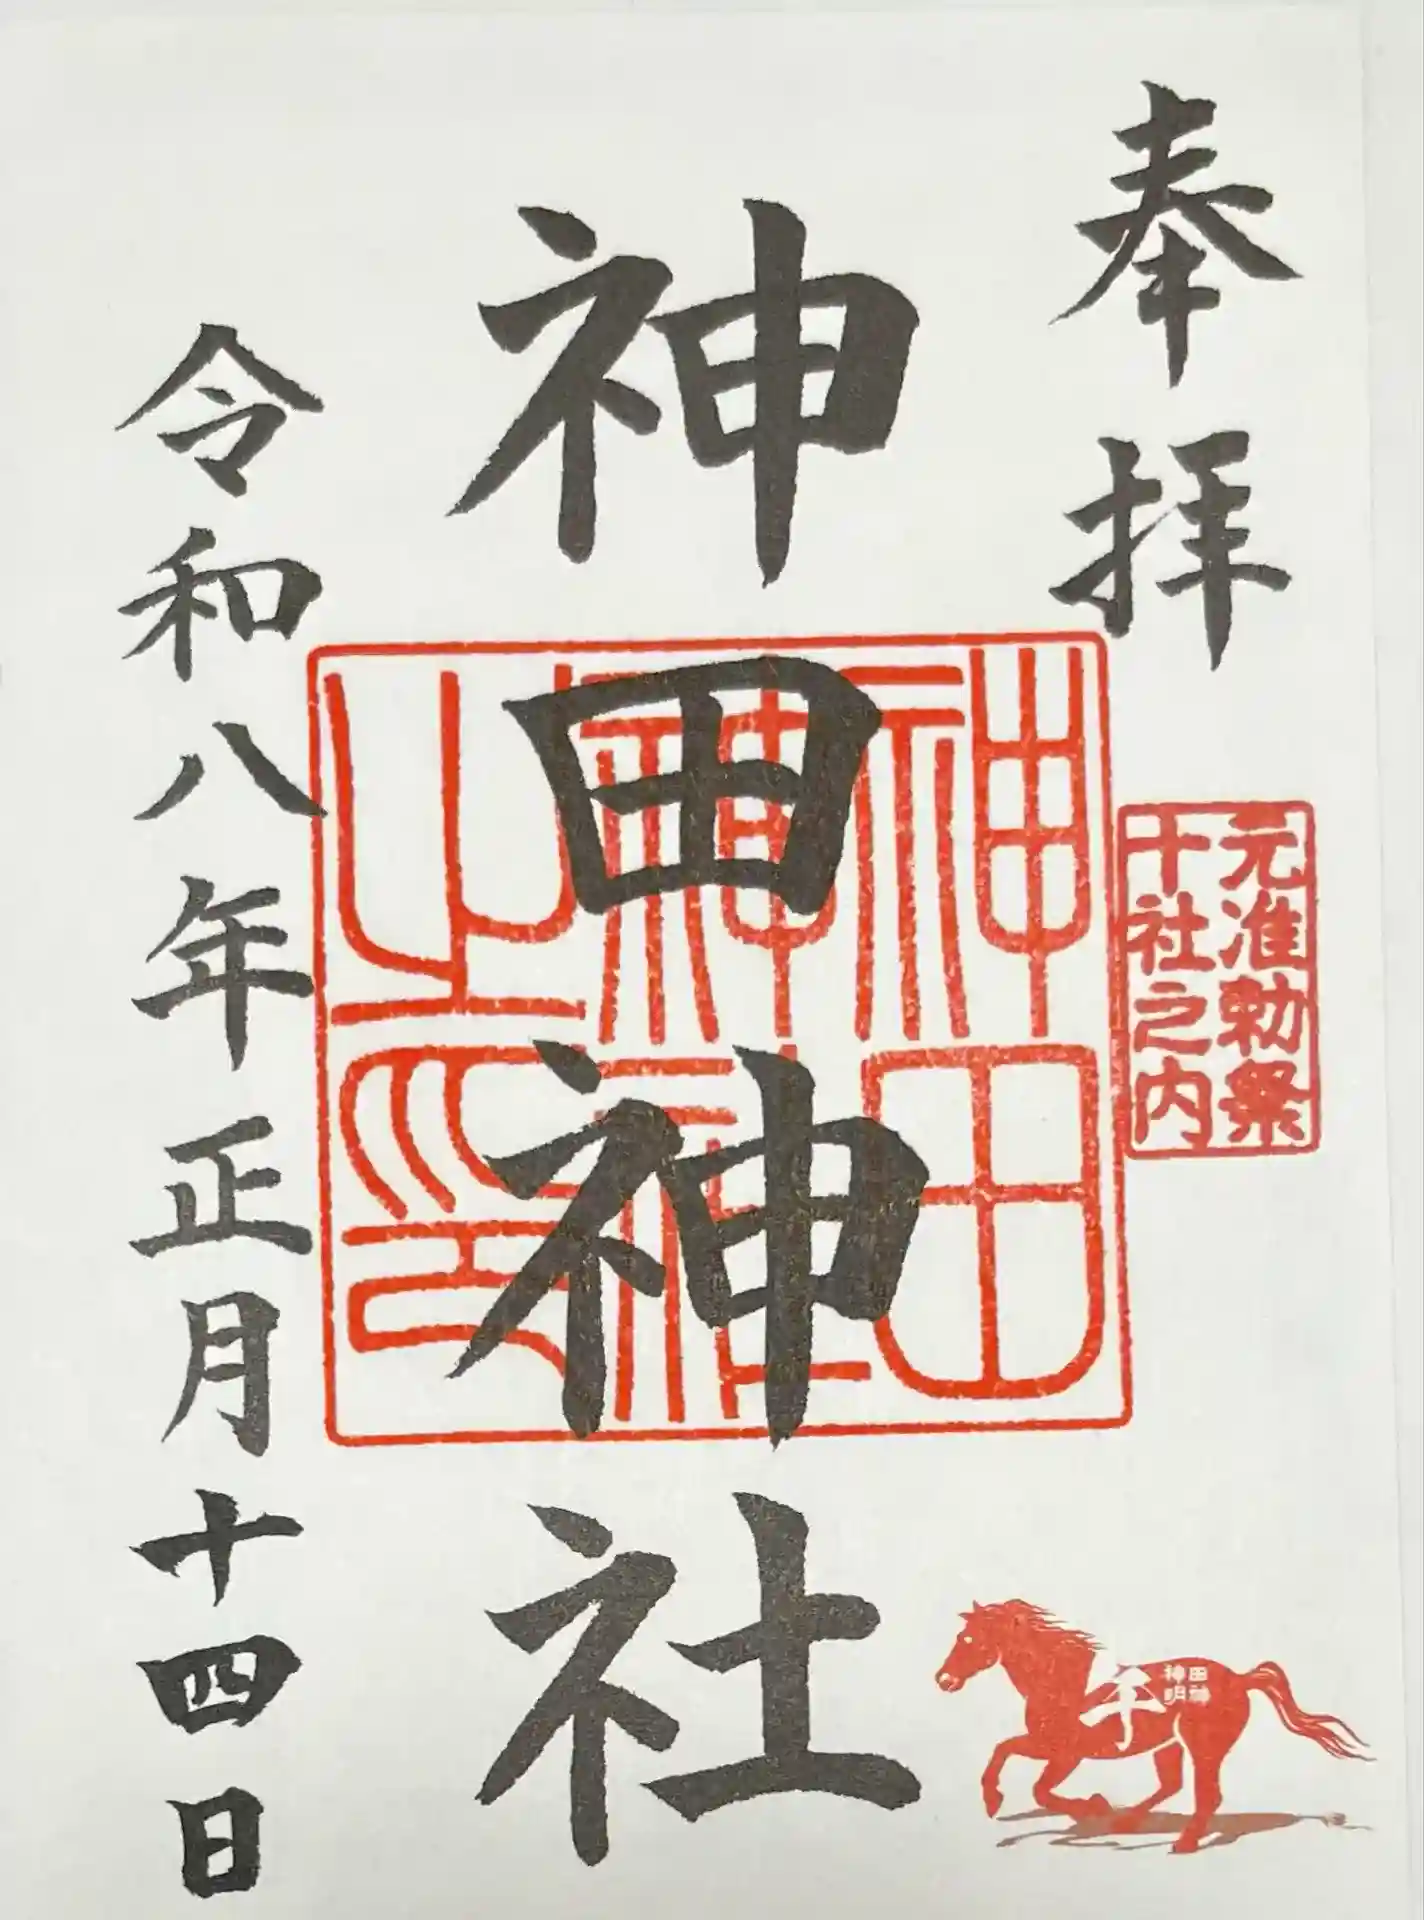 奉拝
元准勅祭
十社之内
神田神社
神田
神社
之印
令和八年正月十四日
午
神田
明神